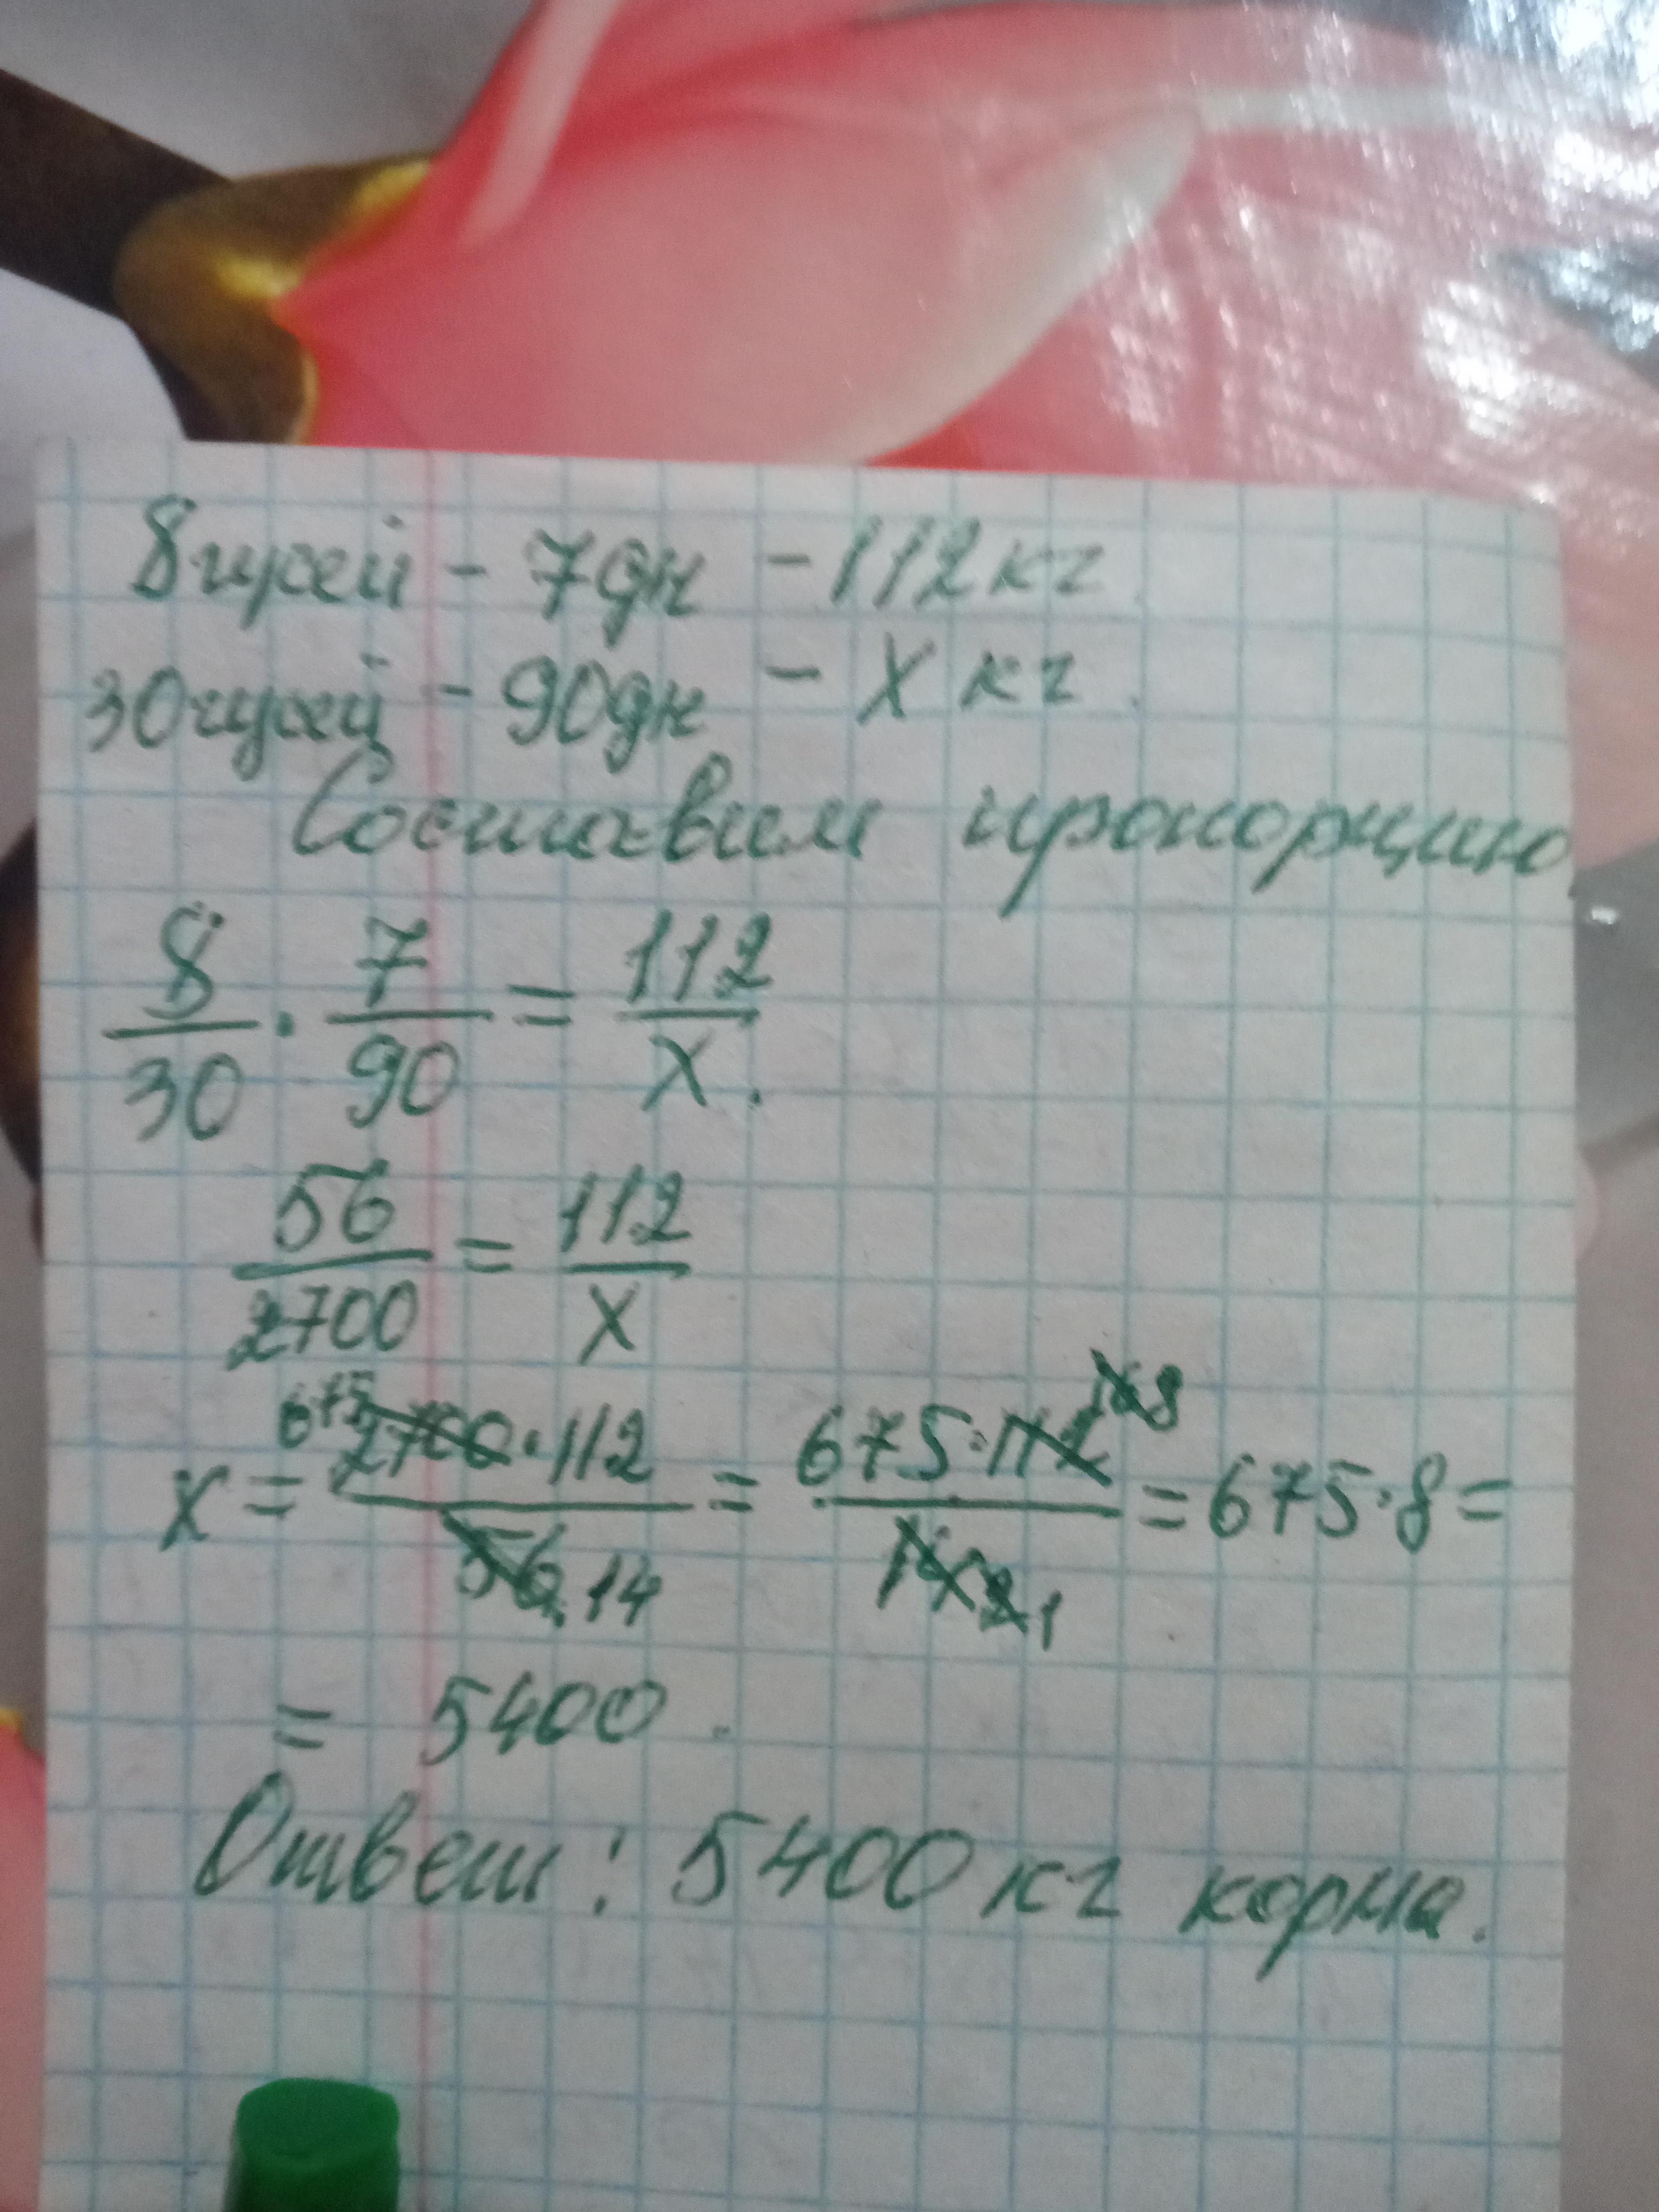 8 гусей - 7 дн - 112 кг.
30 гусей - 90 дн - X кг.
Составим пропорцию.
8/30 · 7/90 = 112/X.
56/2700 = 112/X
X = 675 2700 · 112 / 56 14 = 675 · 112 16 8 / 14 2 1 = 675 · 8 =
= 5400.
Ответ: 5400 кг корма.